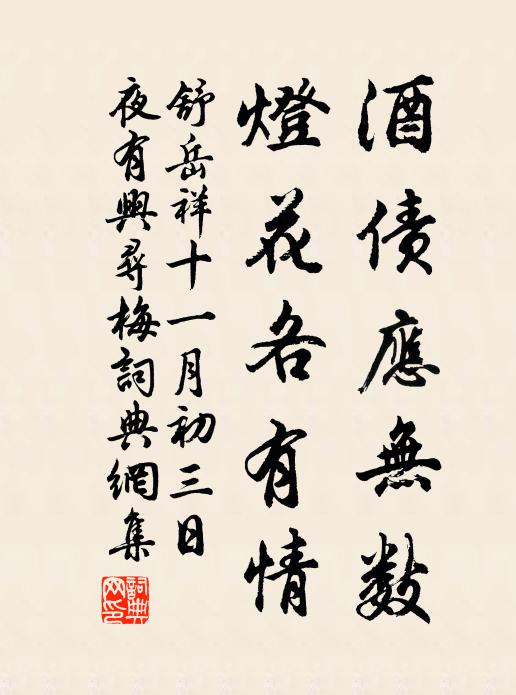 酒债應無数
燈花各有情
舒岳祥十一月初三日
夜有興尋梅詞典網集
詞典
网印